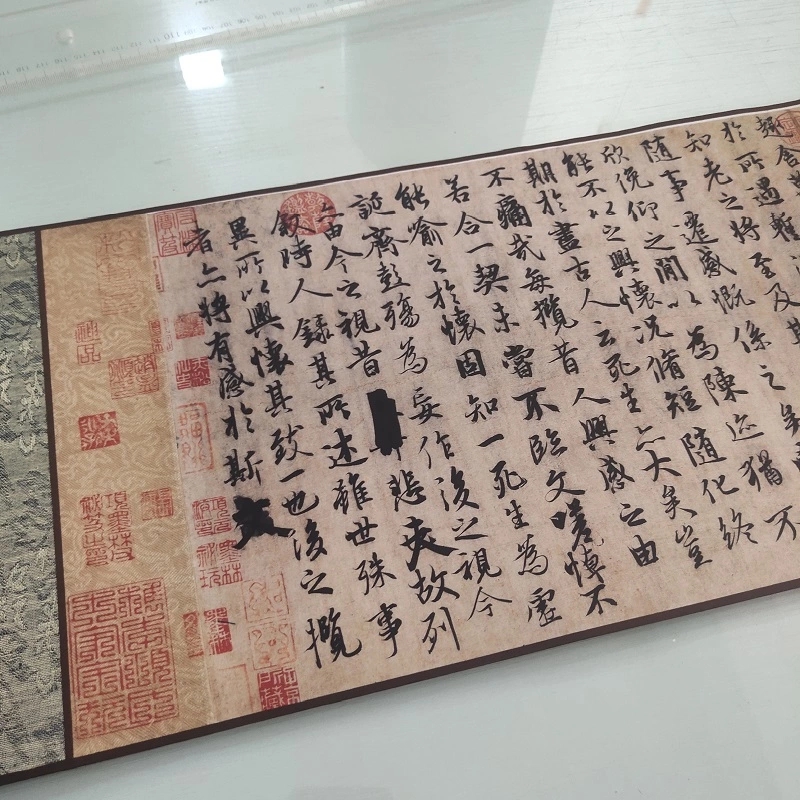 趣舍
於所遇蹔
知老之將至及其
隨事遷感慨係之矣
欣俛仰之閒以為陳迹猶不
能不以之興懷況脩短隨化終
期於盡古人云死生亦大矣豈
不痛哉每攬昔人興感之由
若合一契未嘗不臨文嗟悼不
能喻之於懷固知一死生為虛
誕齊彭殤為妄作後之視今
亦由今之視昔悲夫故列
敘時人錄其所述雖世殊事
異所以興懷其致一也後之攬
者亦將有感於斯文
神品